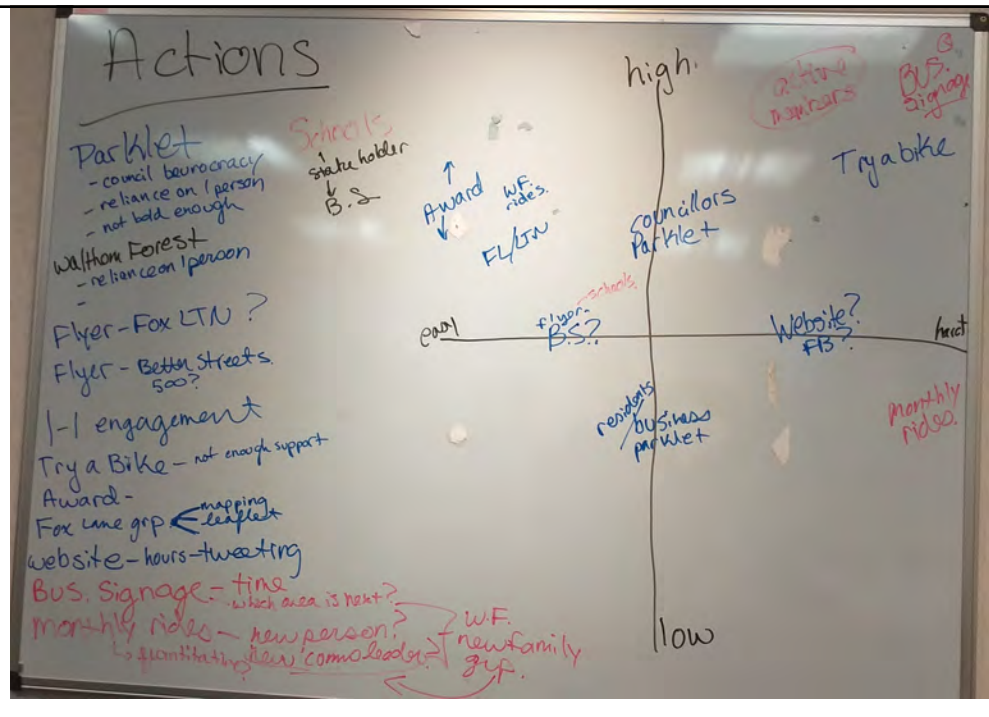 Actions
Parklet
- council beurocracy
- reliance on 1 person
- not bold enough
Waltham Forest
- reliance on 1 person
-
Flyer - Fox LTN ?
Flyer - Better Streets.
500?
1-1 engagement
Try a Bike - not enough support
Award -
Fox Lane grp mapping
leaflet
website - hours - tweeting
Bus. Signage - time
which area is next?
monthly rides - new person?
new comms leader
W.F.
new family
grp.
Schools
stakeholder
B.S
Award
W.F.
rides.
FL/LTN
high.
active
BUS.
signage
Try a bike
councillors
Parklet
schools.
flyer.
B.S?
easy
Website?
FB?
hard
residents
/business
parklet
monthly
rides.
low